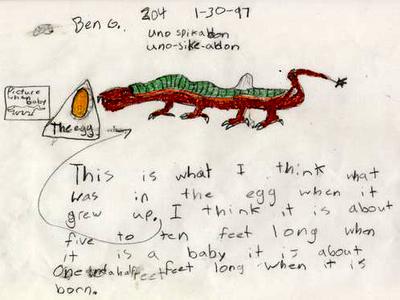 Ben G. 204 1-30-97
uno spikadon
uno-sike-adon
Picture
when
baby
The egg
This is what I think what
was in the egg when it
grew up. I think it is about
five to ten feet long when
it is a baby it is about
One and a half feet feet long when it is
born.